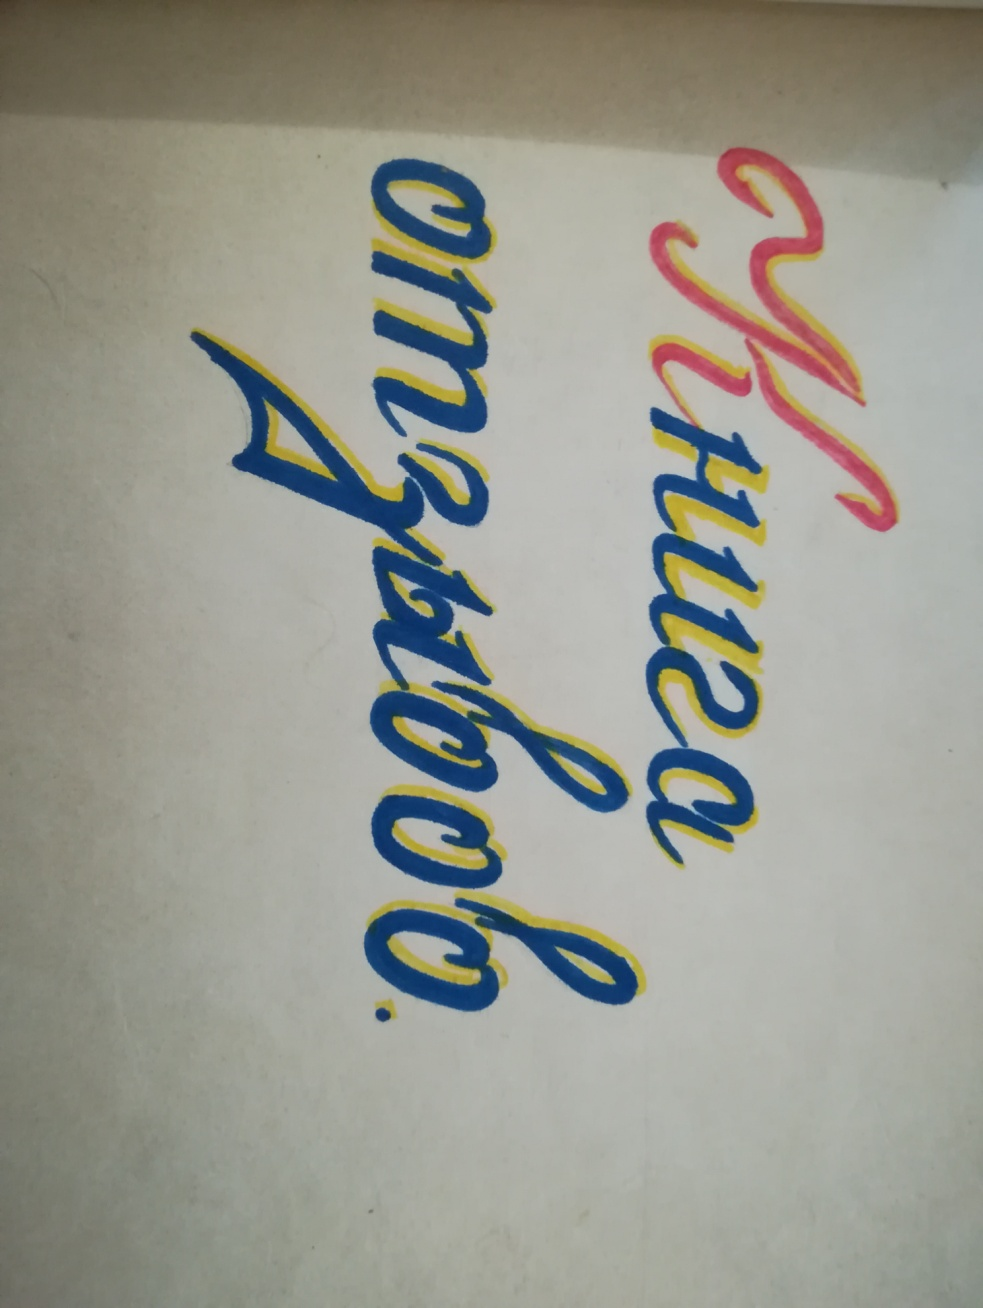 Книга
отзывов.